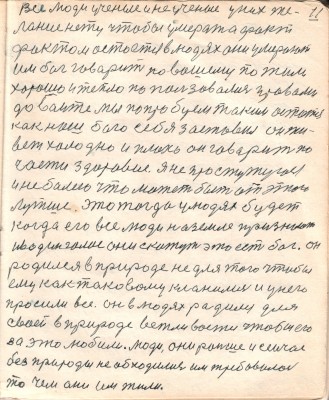 11
Все люди ученые и не ученые у них же-
лание нету чтобы умерать а факт
фактом остоется в людях они умерают
им бог говорит по вашему пожили
хорошо и тепло попользовались правами
довайте мы попробуем таким остаться
как наш бог себя заставил он жи-
вет холодно и плохо он говорит по
части здоровие я не простужусь
и не болею что может быть от этого
лутше. Это тогда у людях будет
когда его все люди на земле признают
людим они скажут это есть бог. он
родился в природе не для того чтобы
ему как таковому кланились и у него
просили все. он в людях родился для
своей в природе вежливости чтобы его
за это любили. люди они раньше и сейчас
без природы не обходились им требовалось
то чем они им жили.